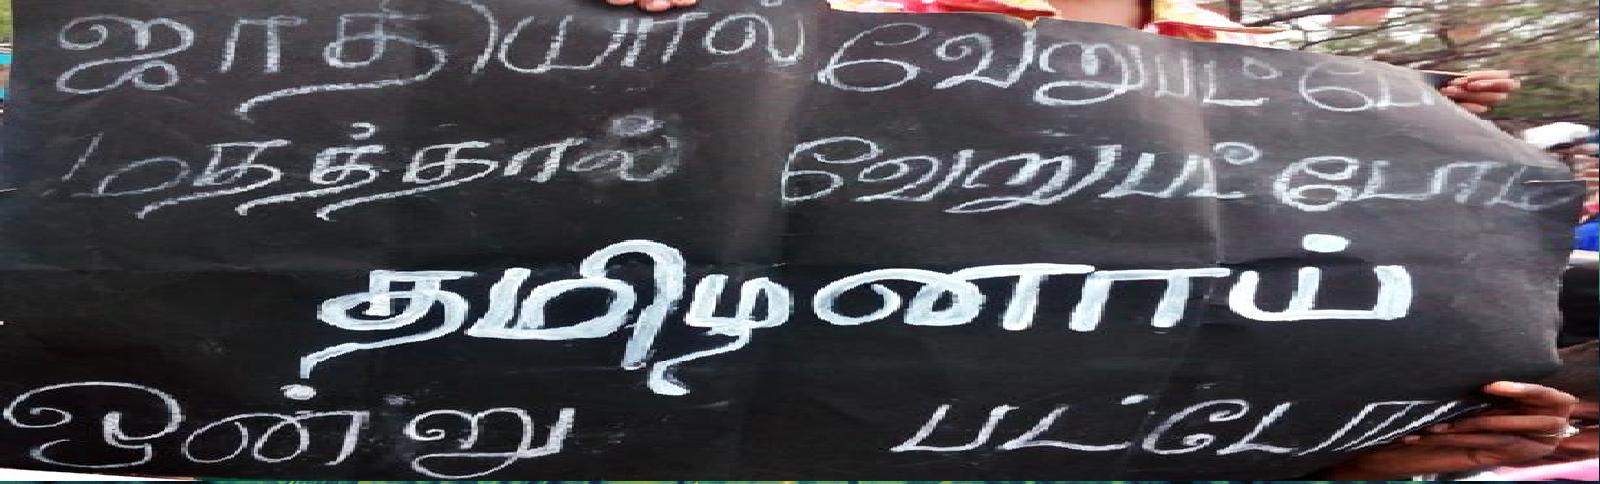 ஜாதியால் வேறுபட்டோ
மதத்தால் வேறுபட்டோம்
தமிழனாய்
ஒன்று பட்டோ